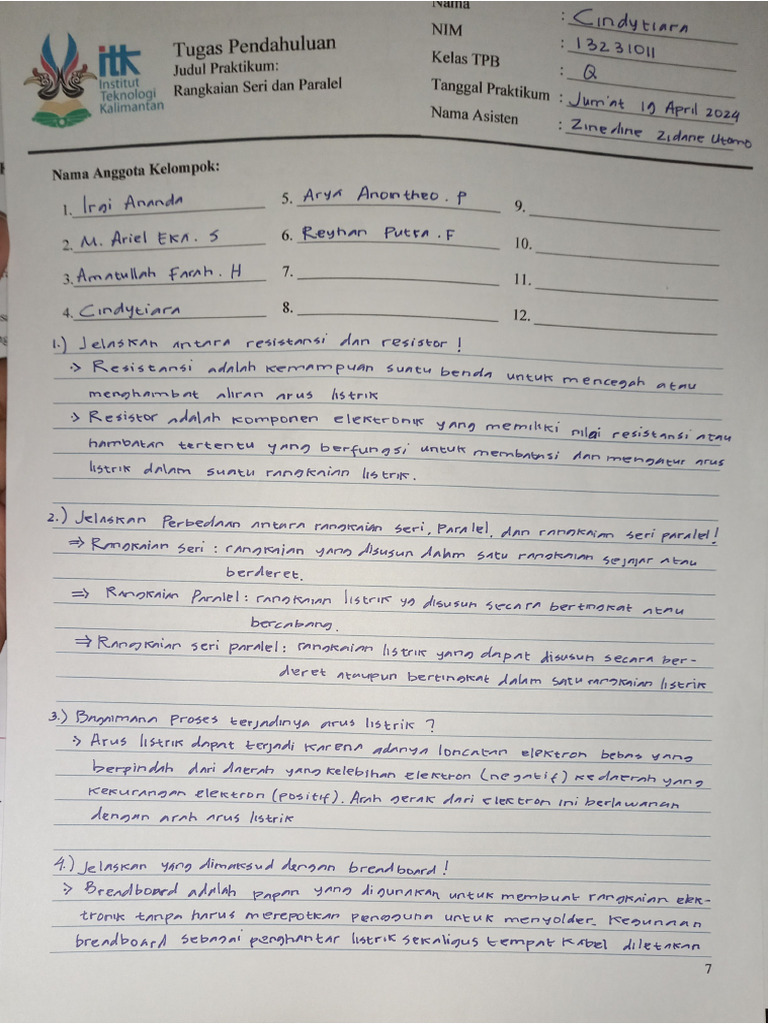 itk
Institut
Teknologi
Kalimantan
Tugas Pendahuluan
Judul Praktikum:
Rangkaian Seri dan Paralel
Nama : Cindytiara
NIM : 13231011
Kelas TPB : Q
Tanggal Praktikum : Jum'at 19 April 2024
Nama Asisten : Zinedine Zidane Utomo
Nama Anggota Kelompok:
1. Irgi Ananda
2. M. Ariel Eka. S
3. Amatullah Farah. H
4. Cindytiara
5. Arya Anontheo. P
6. Reyhan Putra. F
7.
8.
9.
10.
11.
12.
1.) Jelaskan antara resistansi dan resistor!
:> Resistansi adalah kemampuan suatu benda untuk mencegah atau
menghambat aliran arus listrik
:> Resistor adalah komponen elektronik yang memilki nilai resistansi atau
hambatan tertentu yang berfungsi untuk membatasi dan mengatur arus
listrik dalam suatu rangkaian listrik.
2.) Jelaskan Perbedaan antara rangkaian seri, paralel, dan rangkaian seri paralel!
=> Rangkaian seri : rangkaian yang disusun dalam satu rangkaian sejajar atau
berderet.
=> Rangkaian Paralel : rangkaian listrik yg disusun secara bertingkat atau
bercabang.
=> Rangkaian seri paralel : rangkaian listrik yang dapat disusun secara ber-
deret ataupun bertingkat dalam satu rangkaian listrik
3.) Bagaimana proses terjadinya arus listrik ?
:> Arus listrik dapat terjadi karena adanya loncatan elektron bebas yang
berpindah dari daerah yang kelebihan elektron (negatif) kedaerah yang
kekurangan elektron (positif). Arah gerak dari elektron ini berlawanan
dengan arah arus listrik
4.) Jelaskan yang dimaksud dengan breadboard!
:> Breadboard adalah papan yang digunakan untuk membuat rangkaian elek-
tronik tanpa harus merepotkan pengguna untuk menyolder. Kegunaan
breadboard sebagai penghantar listrik sekaligus tempat kabel diletakan
7